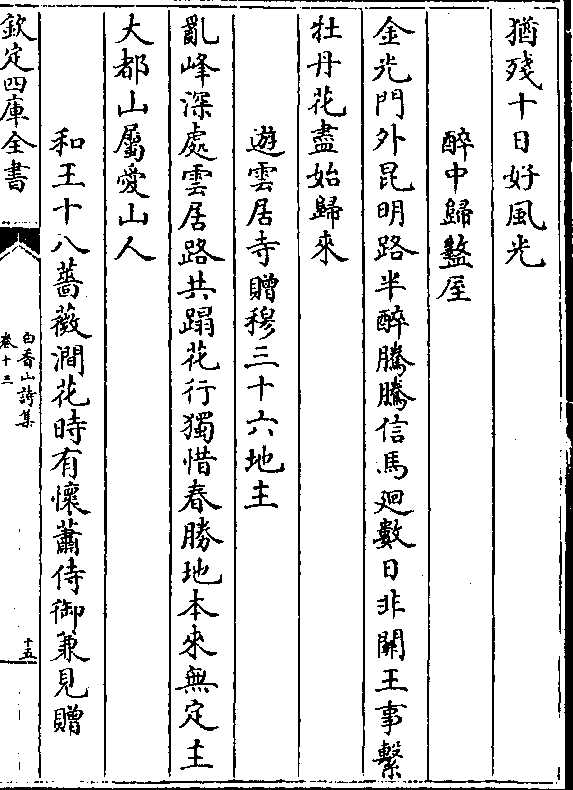 猶殘十日好風光
醉中歸盩厔
金光門外昆明路半醉騰騰信馬廻數日非關王事繫
牡丹花盡始歸來
遊雲居寺贈穆三十六地主
亂峰深處雲居路共蹋花行獨惜春勝地本來無定主
大都山屬愛山人
和王十八薔薇澗花時有懷蕭侍御兼見贈
欽定四庫全書
白香山詩集
卷十三
十五